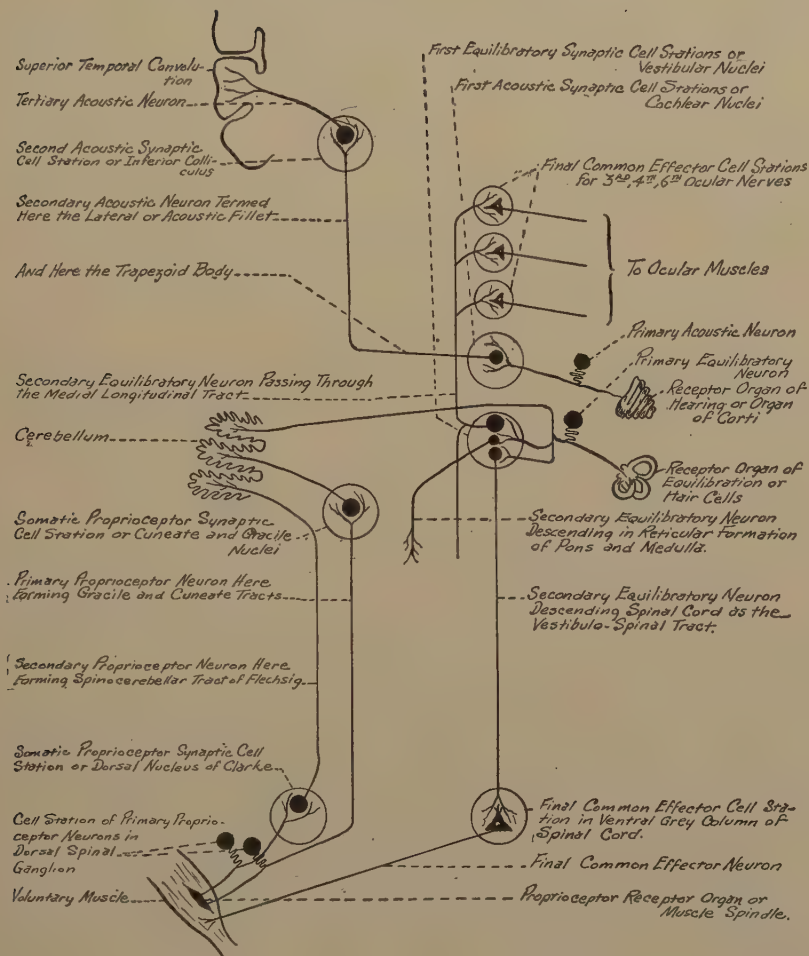 Superior Temporal Convolu-
tion
Tertiary Acoustic Neuron
Second Acoustic Synaptic
Cell Station or Inferior Colli-
culus
Secondary Acoustic Neuron Termed
Here the Lateral or Acoustic Fillet
And Here the Trapezoid Body
Secondary Equilibratory Neuron Passing Through
the Medial Longitudinal Tract
Cerebellum
Somatic Proprioceptor Synaptic
Cell Station or Cuneate and Gracile
Nuclei
Primary Proprioceptor Neuron Here
Forming Gracile and Cuneate Tracts
Secondary Proprioceptor Neuron Here
Forming Spinocerebellar Tract of Flechsig
Somatic Proprioceptor Synaptic Cell
Station or Dorsal Nucleus of Clarke
Cell Station of Primary Proprio-
ceptor Neurons in
Dorsal Spinal
Ganglion
Voluntary Muscle
First Equilibratory Synaptic Cell Stations or
Vestibular Nuclei
First Acoustic Synaptic Cell Stations or
Cochlear Nuclei
Final Common Effector Cell Stations
for 3RD, 4TH, 6TH Ocular Nerves
To Ocular Muscles
Primary Acoustic Neuron
Primary Equilibratory
Neuron
Receptor Organ of
Hearing or Organ
of Corti
Receptor Organ of
Equilibration or
Hair Cells
Secondary Equilibratory Neuron
Descending in Reticular Formation
of Pons and Medulla.
Secondary Equilibratory Neuron
Descending Spinal Cord as the
Vestibulo-Spinal Tract.
Final Common Effector Cell Sta-
tion in Ventral Grey Column of
Spinal Cord.
Final Common Effector Neuron
Proprioceptor Receptor Organ or
Muscle Spindle.